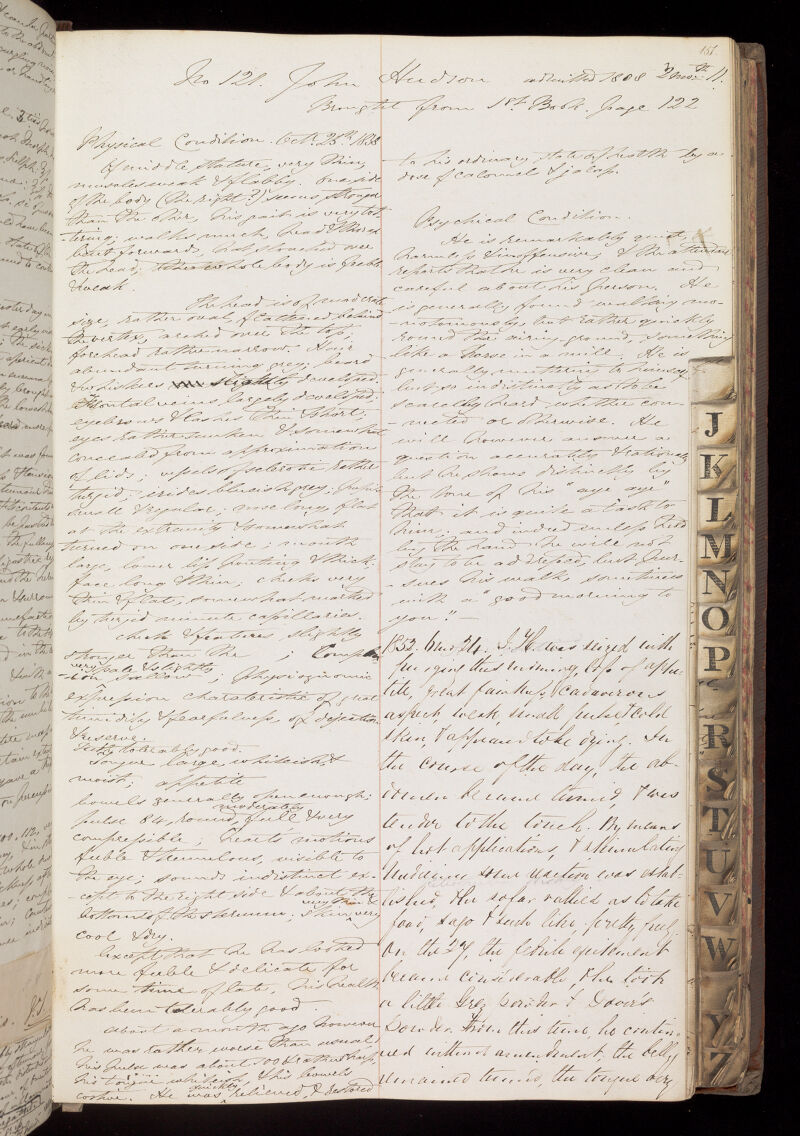 151.
No 121. John Hudson admitted 1808 2 mo 11.
Brought from 1st Book. page 122
Physical Condition. Oct. 25th 1838
Of middle stature, very thin,
muscles weak & flabby. One side
of the body (the right?) seems stronger
than the other, his gait is very tot-
-tering; walks much, head & thorax
bent forwards, hat slouched over
the head, the whole body is feeble
& weak.
The head is of moderate
size, rather oval, flattened behind
the vertex, arched over the top,
forehead rather narrow. Hair
abundant turning grey; beard
& whiskers slightly developed.
Frontal veins largely developed;
eyebrows & lashes thin & short;
eyes rather sunken & somewhat
concealed from approximation
of lids; vessels of sclerotic rather
turgid; irides bluish grey; pupils
small & regular, nose long, flat
at the extremity & somewhat
turned on one side; mouth
large, lower lip pouting & thick.
face long & thin; cheeks very
thin & flat, somewhat marked
by turgid minute capillaries.
cheek & features slightly
stronger than the ; Complex-
-ion very pale & slightly sallow; Physiognomic
expression characteristic of great
timidity & fearfulness, of dejection
& reserve.
Teeth tolerably good.
Tongue large, whitish, &
moist; appetite
bowels generally open enough;
pulse 84, round, moderately full & very
compressible; heart's motions
feeble & tremulous, visible to
the eye; sounds indistinct ex-
-cept to the right side & about the
bottom of the sternum; skin very
cool & dry.
Except that he has looked
more feeble & delicate for
some time of late, his health
has been tolerably good.
About a month ago however
he was rather worse than usual
his pulse was about 100 & rather sharp,
his tongue whitish, & his bowels
costive. He was quickly relieved, & restored
to his ordinary state of health by a
dose of calomel & jalap.
Psychical Condition.
He is remarkably quiet,
harmless & inoffensive, & the attendant
reports that he is very clean and
careful about his person. He
is generally found walking mo-
-notonously, but rather quickly
round the airing ground, something
like a horse in a mill. He is
generally muttering to himself
but so indistinctly as to be
scarcely heard, whether con-
-nected or otherwise. He
will however answer a
question accurately & rationally
but he shows distinctly by
the tone of his "aye aye"
that it is quite a task to
him; and indeed unless held
by the hand he will not
stay to be addressed, but pur-
-sues his walk sometimes
with a "good morning to
you" -
1852. 6 mo 24. J. H. was seized with
purging this morning, loss of appe-
tite, great faintness, cadaverous
aspect, weak, small pulse & cold
skin, & appeared to be dying. In
the course of the day, the ab-
domen became tumid, & was
tender to the touch. By means
of hot applications, & stimulating
medicine some reaction was estab-
lished, & he so far rallied as to take
food, sago & such like, pretty freely.
On the 27, the febrile excitement
became considerable, & he took
a little Grey Powder & Dover's
Powder. From this time, he contin-
ued without amendment, the belly
remained tumid, the tongue dry
J
K
L
M
N
O
P
R
S
T
U
V
W
Y
Z